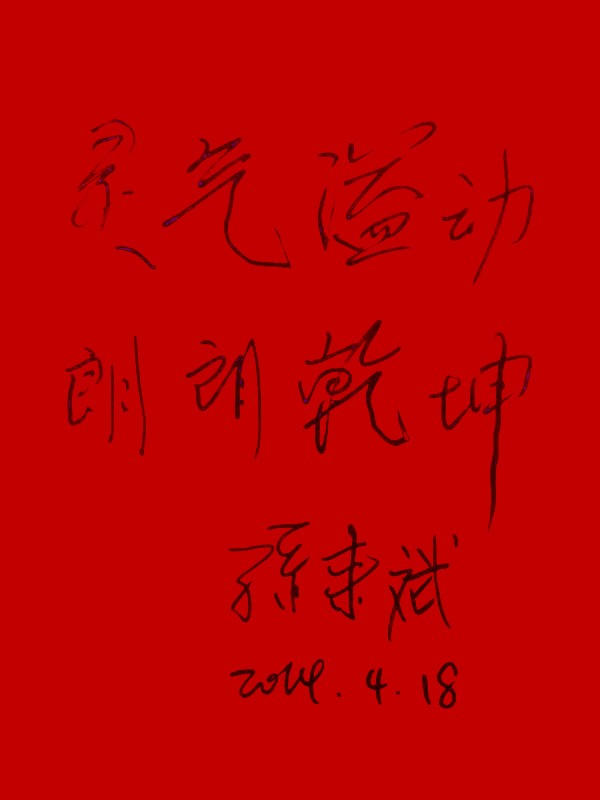 灵气溢动
朗朗乾坤
孫来斌
2014.4.18